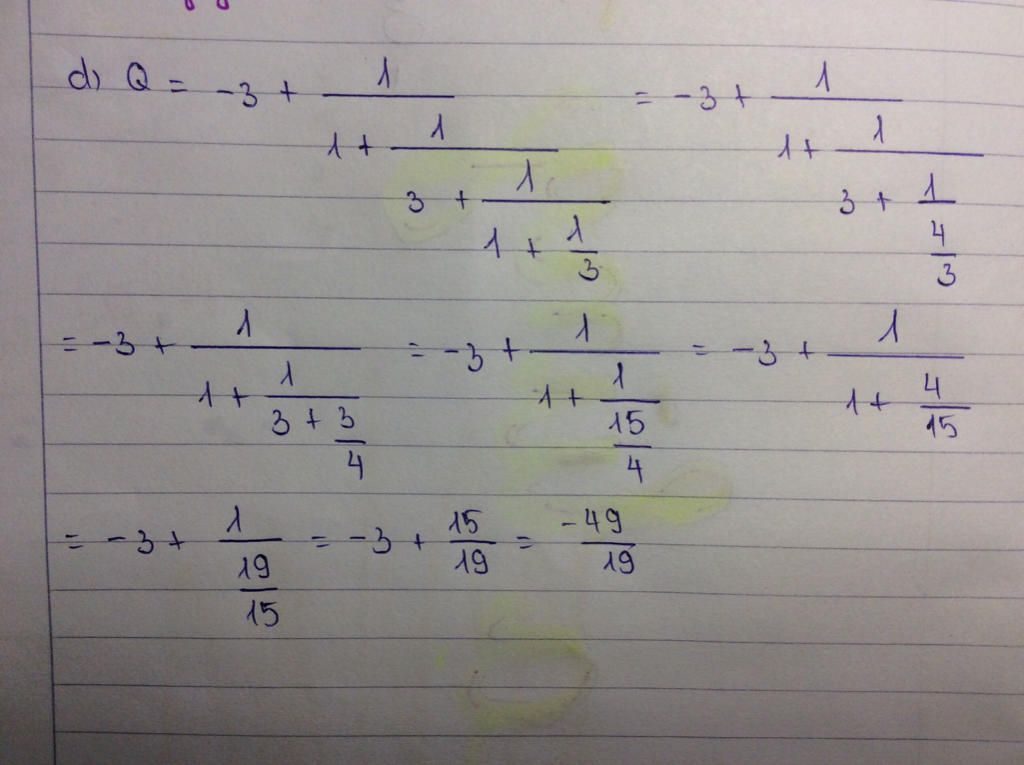 d) Q = -3 + \frac{1}{1 + \frac{1}{3 + \frac{1}{1 + \frac{1}{3}}}} = -3 + \frac{1}{1 + \frac{1}{3 + \frac{1}{\frac{4}{3}}}}
= -3 + \frac{1}{1 + \frac{1}{3 + \frac{3}{4}}} = -3 + \frac{1}{1 + \frac{1}{\frac{15}{4}}} = -3 + \frac{1}{1 + \frac{4}{15}}
= -3 + \frac{1}{\frac{19}{15}} = -3 + \frac{15}{19} = \frac{-49}{19}